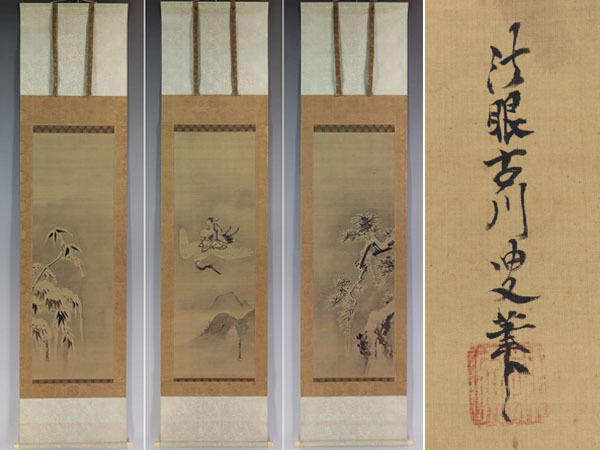 法眼古川叟筆